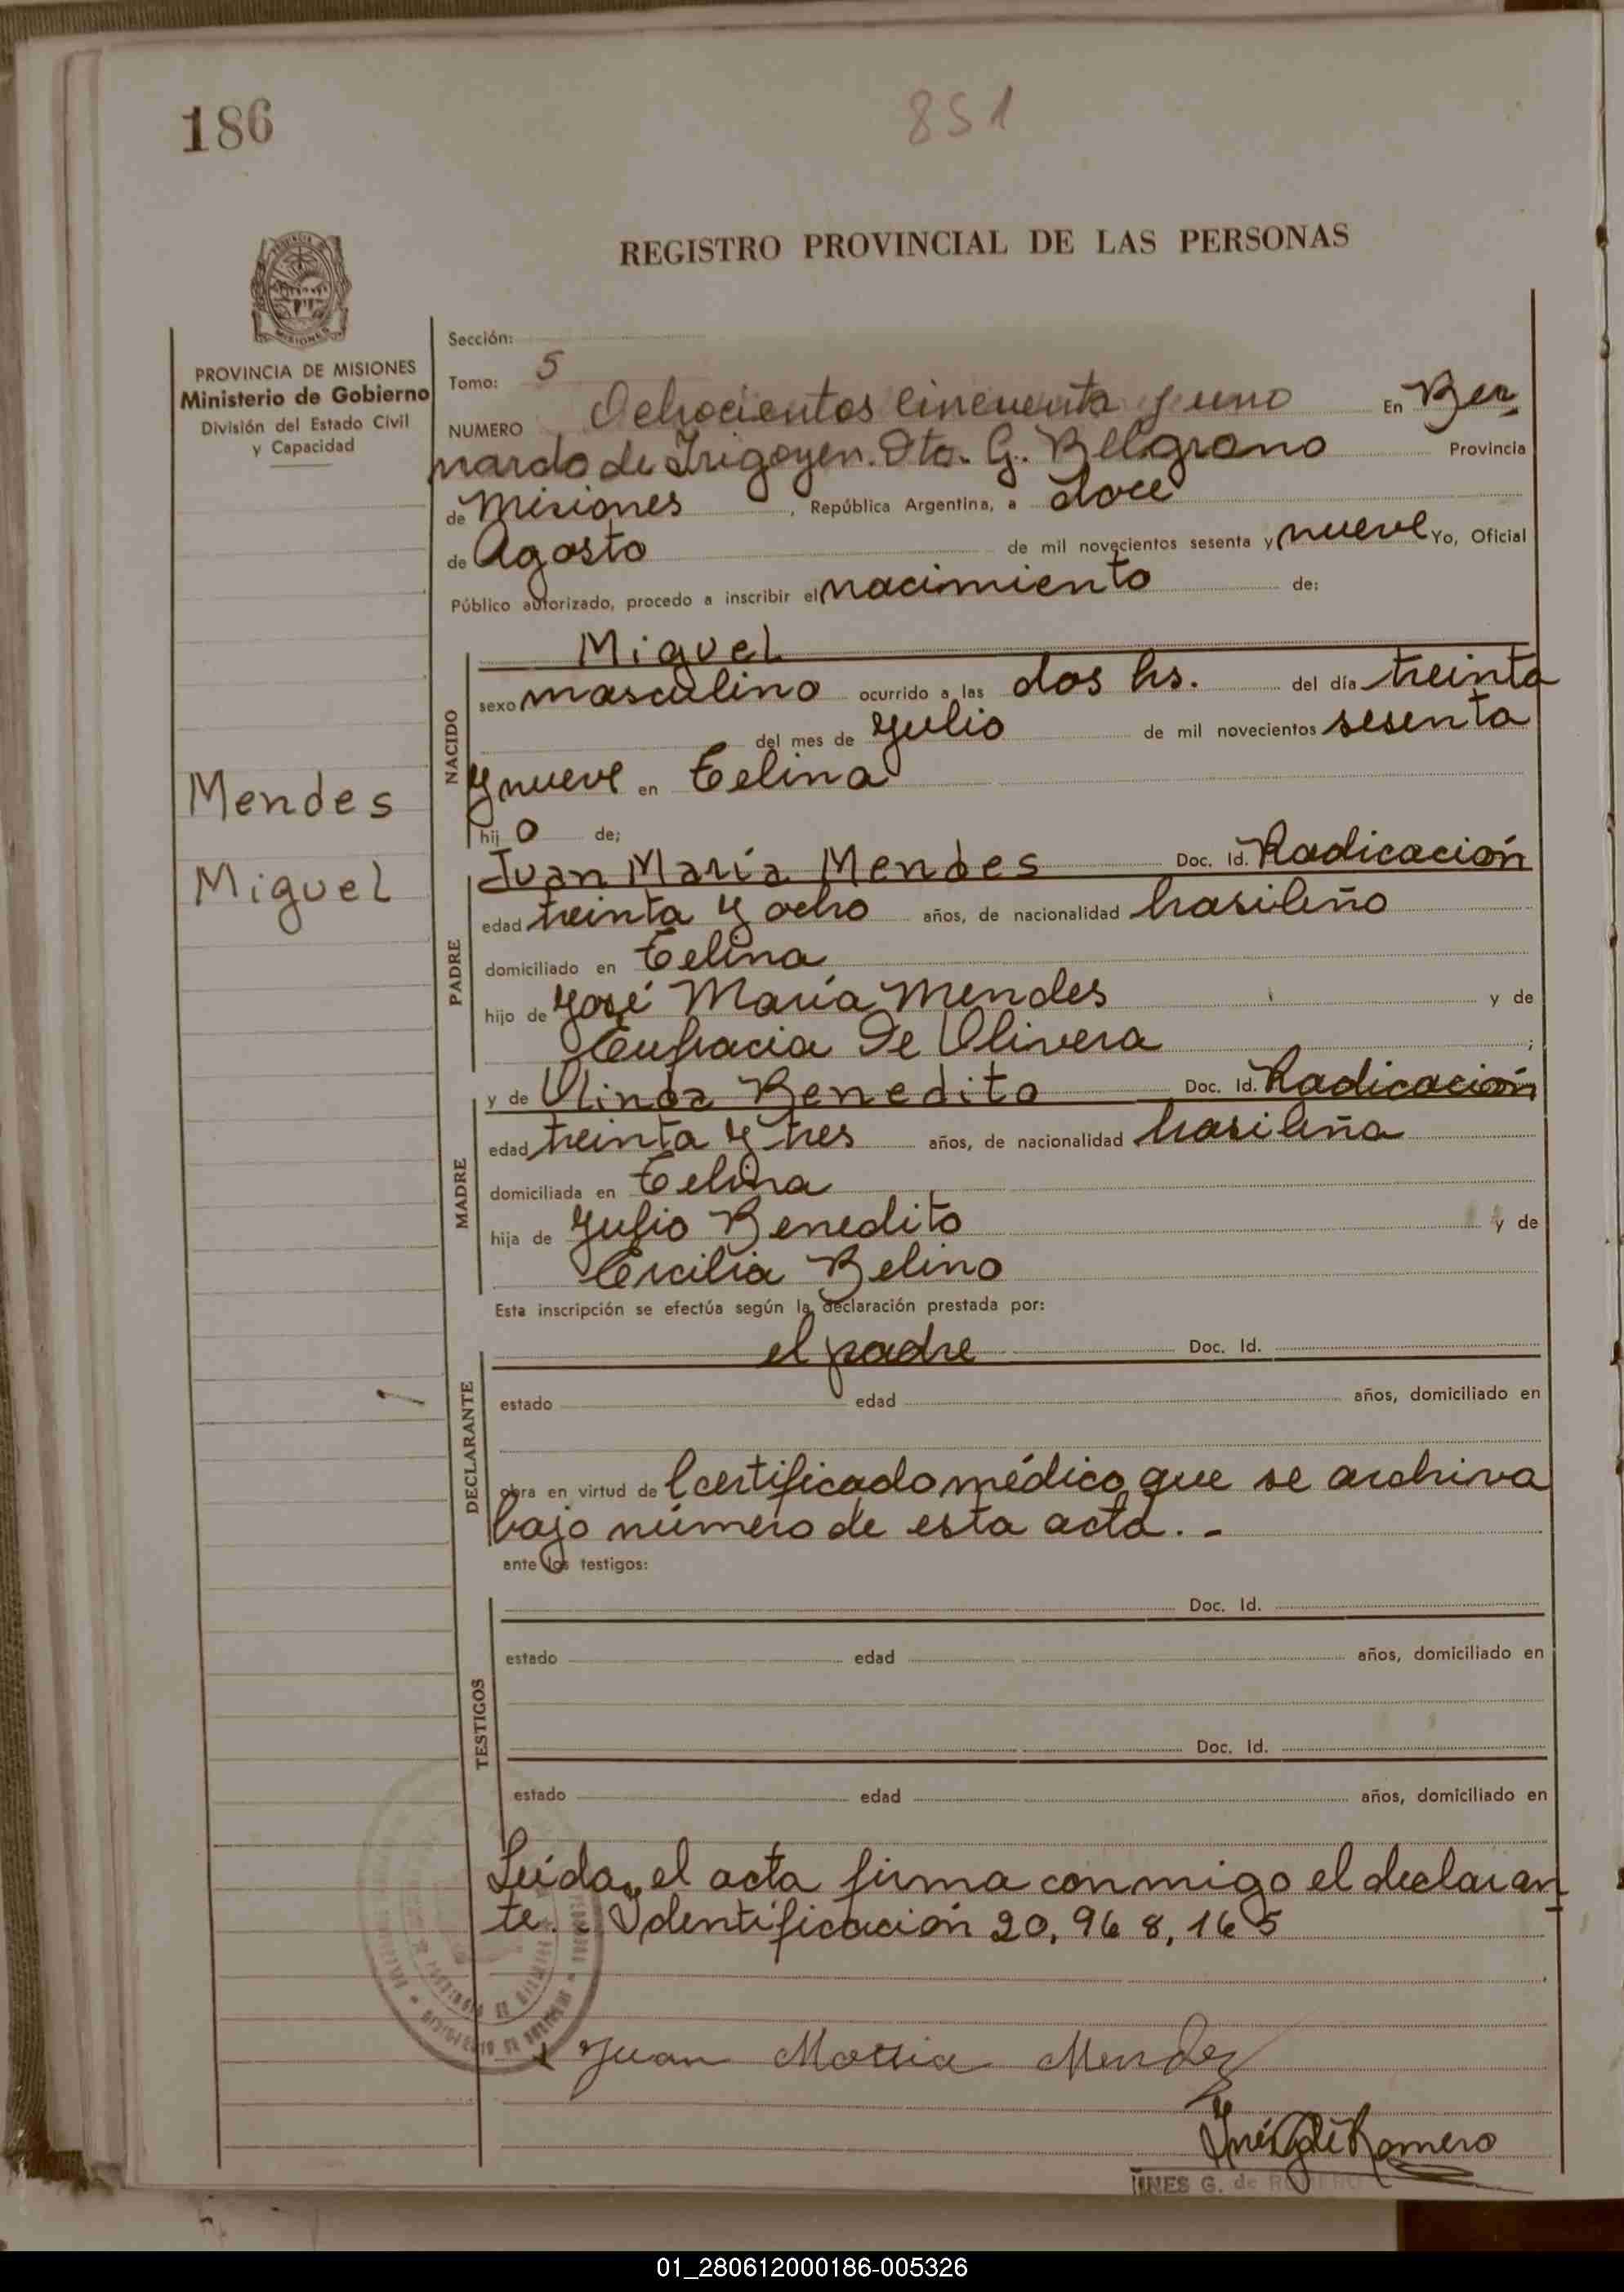 186
851
REGISTRO PROVINCIAL DE LAS PERSONAS
MISIONES
PROVINCIA DE MISIONES
Ministerio de Gobierno
División del Estado Civil
y Capacidad
Sección:
Tomo: 5
NUMERO Ochocientos cincuenta y uno En Ber
nardo de Irigoyen. Dto. G. Belgrano Provincia
de Misiones, República Argentina, a doce
de Agosto de mil novecientos sesenta y nueve Yo, Oficial
Público autorizado, procedo a inscribir el nacimiento de:
NACIDO
Miguel
sexo masculino ocurrido a las dos hs. del día treinta
del mes de Julio de mil novecientos sesenta
y nueve en Celina
hijo de;
Mendes
Miguel
PADRE
Juan María Mendes Doc. Id. Radicación
edad treinta y ocho años, de nacionalidad brasileño
domiciliado en Celina
hijo de José María Mendes y de
Eufracia De Olivera;
MADRE
y de Olinda Benedito Doc. Id. Radicación
edad treinta y tres años, de nacionalidad brasileña
domiciliada en Celina
hija de Julio Benedito y de
Ercilia Belino
Esta inscripción se efectúa según la declaración prestada por:
DECLARANTE
el padre Doc. Id.
estado edad años, domiciliado en
obra en virtud del certificado médico que se archiva
bajo número de esta acta.-
ante los testigos:
TESTIGOS
Doc. Id.
estado edad años, domiciliado en
Doc. Id.
estado edad años, domiciliado en
Leída, el acta firma conmigo el declaran
te. Identificación 20,968,165
Juan Maria Mendez
Inés G de Romero
INES G. de ROMERO
01_280612000186-005326